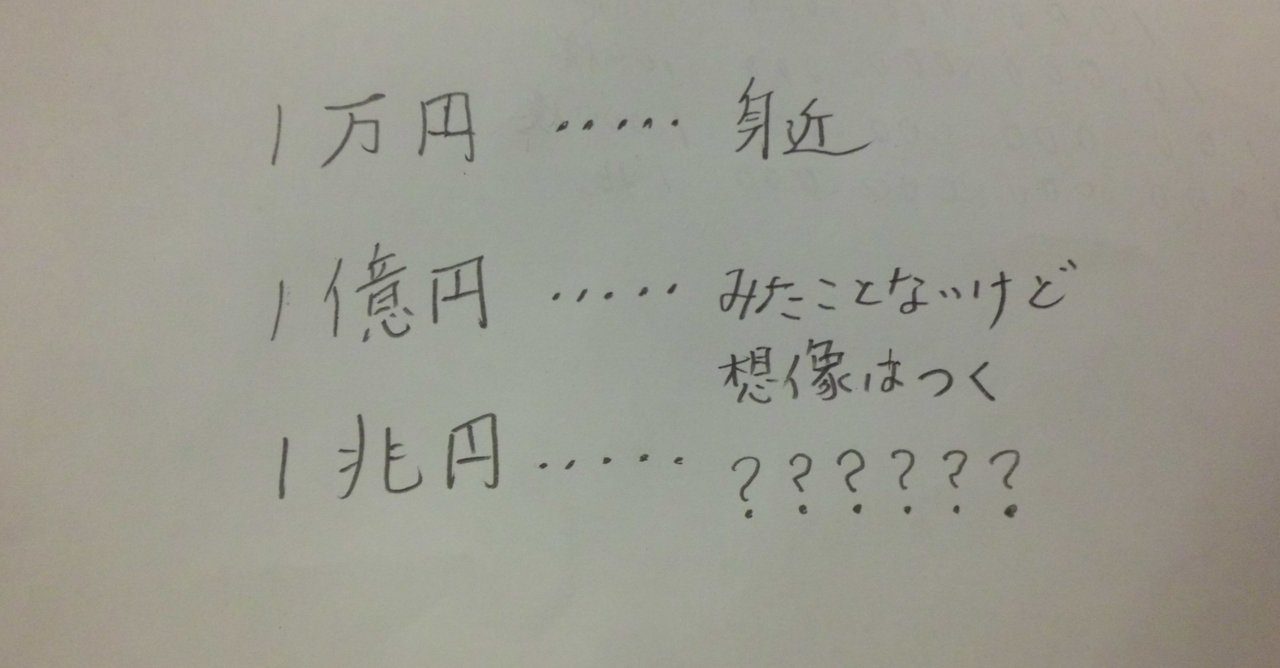 1万円 ····· 身近
1億円 ····· みたことないけど
想像はつく
1兆円 ····· ??????